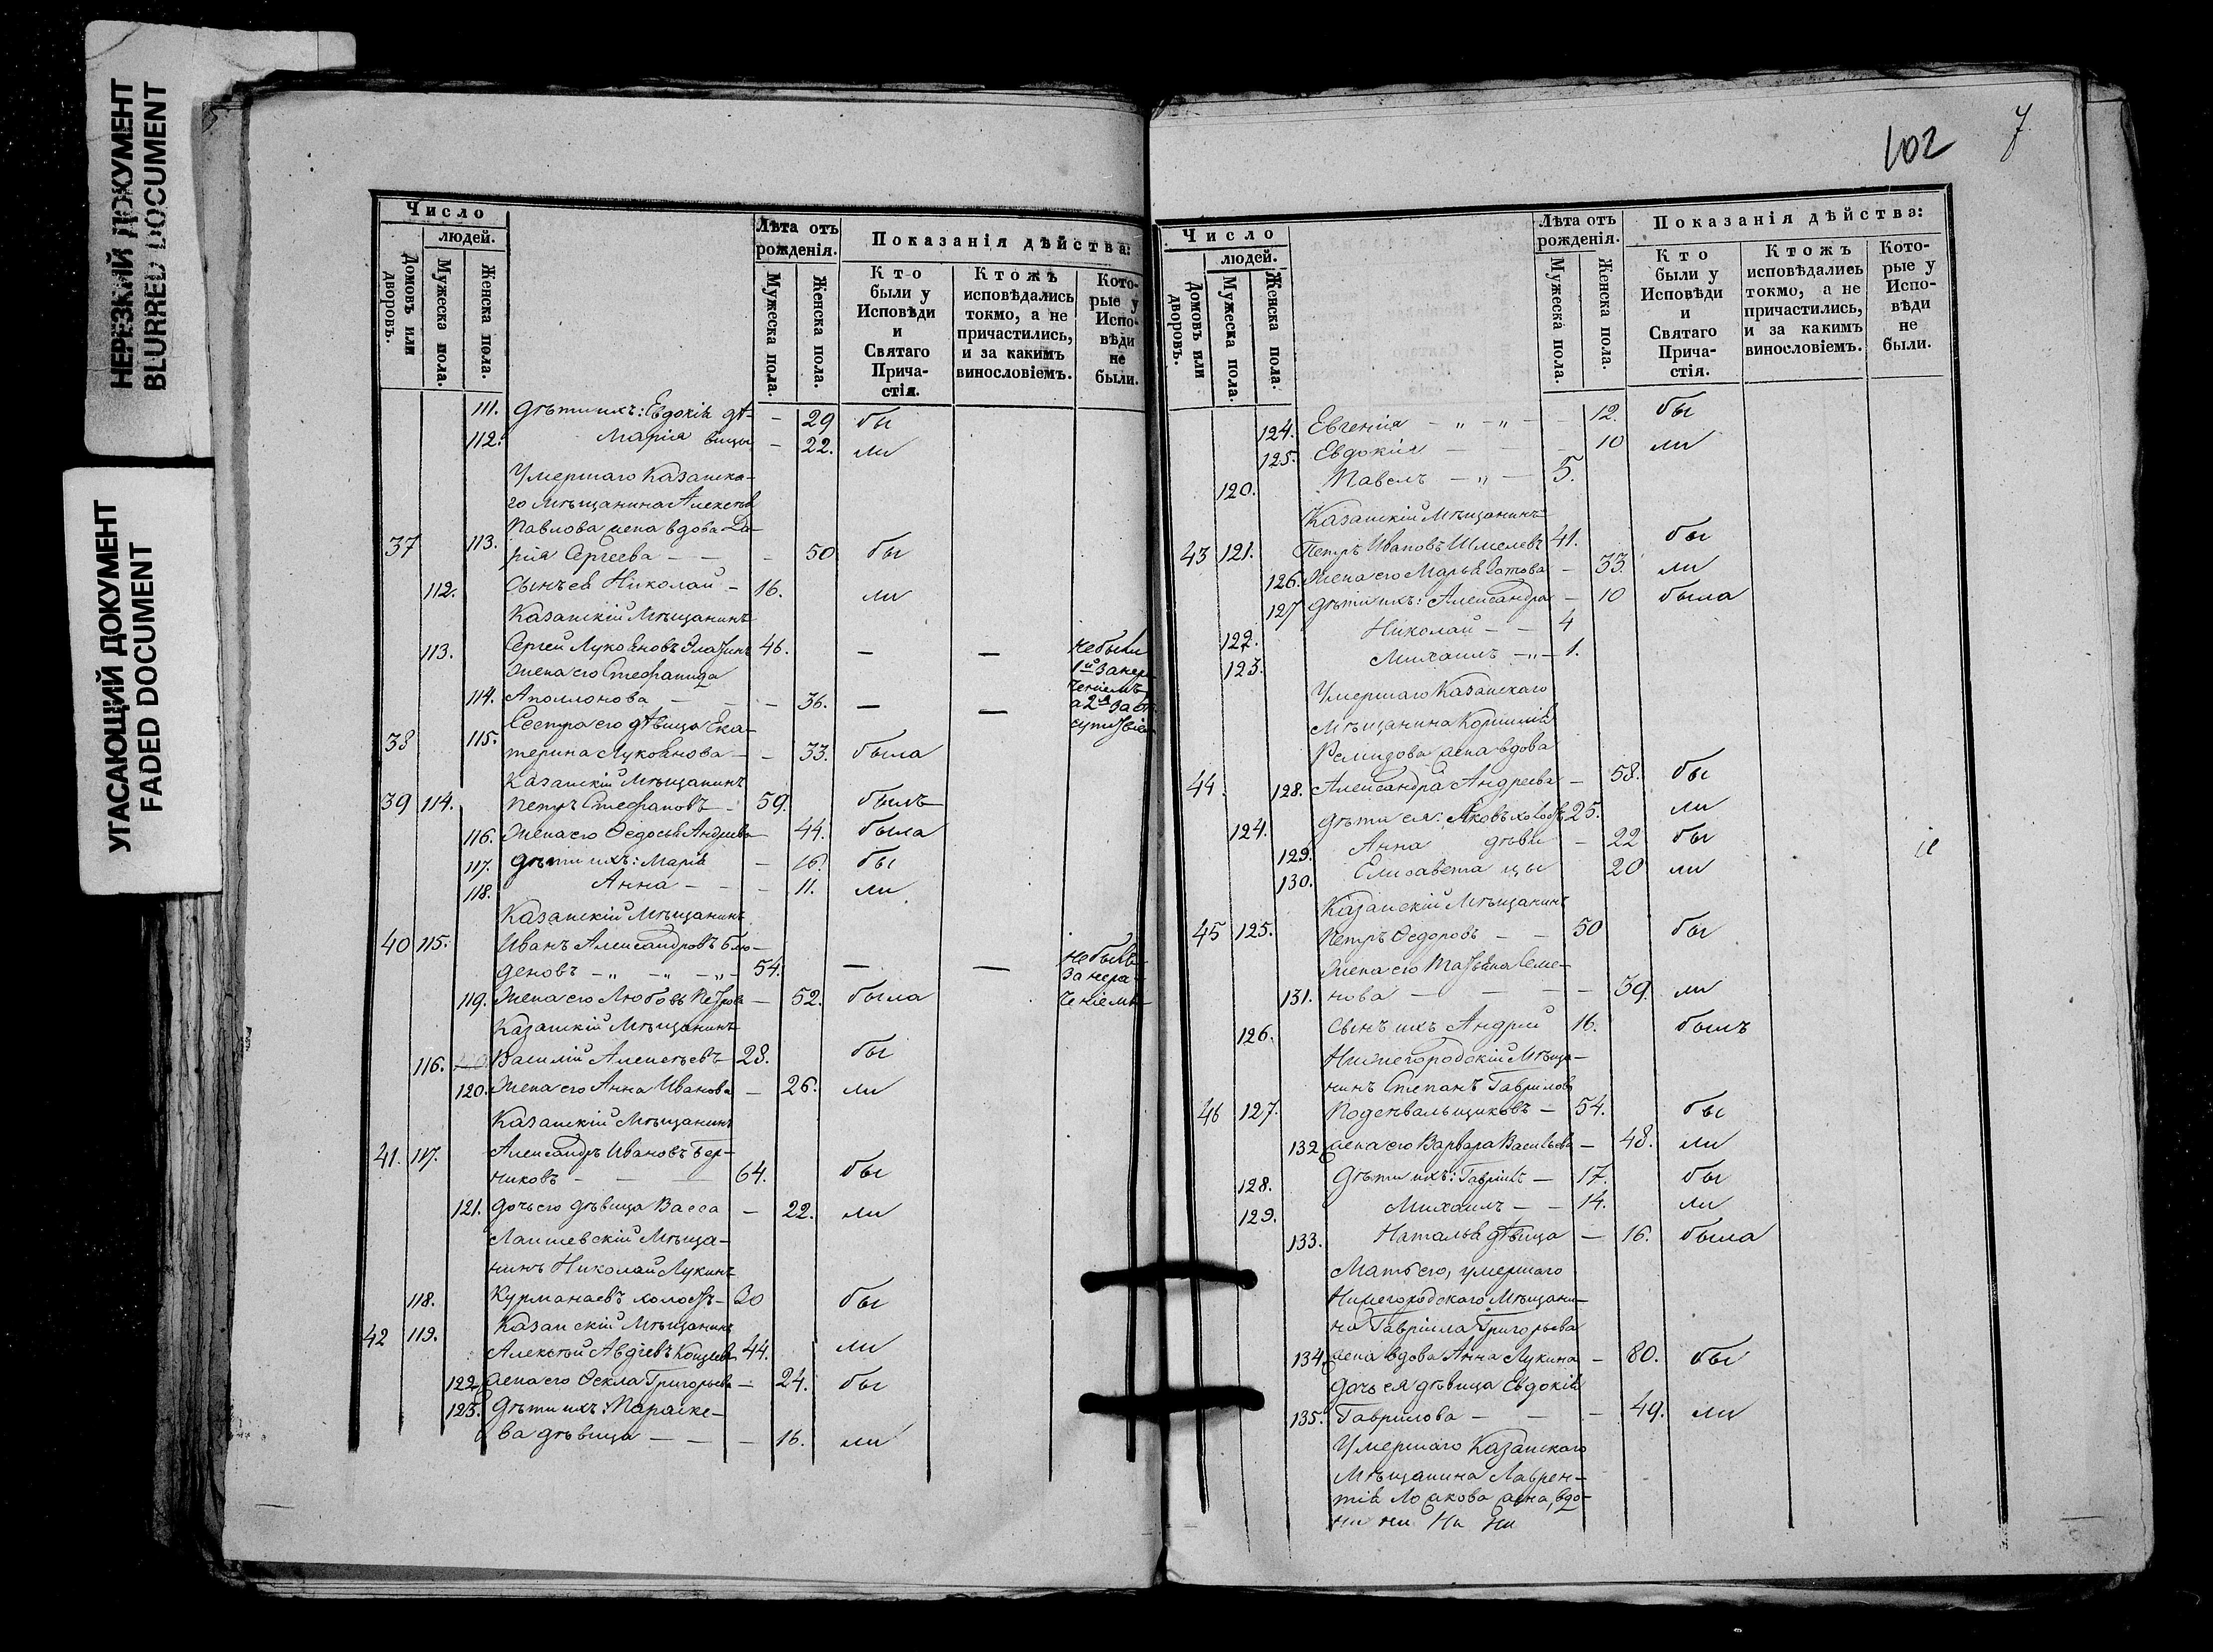 НЕРЕЗКИЙ ДОКУМЕНТ
BLURRED DOCUMENT
УГАСАЮЩИЙ ДОКУМЕНТ
FADED DOCUMENT
Число
людей.
Домовъ или дворовъ.
Мужеска пола.
Женска пола.
Лѣта отъ рожденія.
Мужеска пола.
Женска пола.
Показанія дѣйства:
Кто были у Исповѣди и Святаго Причастія.
Ктожъ исповѣдались токмо, а не причастились, и за какимъ винословіемъ.
Которые у Исповѣди не были.
111. Дѣти ихъ: Евдокія дѣ- — 29 бы
112. Марія вицы — 22. ли
Умершаго Казанска-
го мѣщанина Алексѣя
Павлова жена вдова Да-
37 113. рія Сергеева — — — 50 бы
112. Сынъ ея Николай — 16. ли
Казанскій Мѣщанинъ
113. Сергей Лукояновъ 46. — — не были
Жена его Стефанида 1й за нера-
114. Аполлонова — — — 36. — — ченіемъ
Сестра его дѣвица Ека- а 2я за от-
38 115. терина Лукоянова — — 33. была сутствіем
Казанскій Мѣщанинъ
39 114. Петръ Стефановъ — 59. былъ
116. Жена его Ѳедосья Андреева — 44. была
117. Дѣти ихъ: Марія — 16. бы
118. Анна — — — 11. ли
Казанскій Мѣщанинъ
40 115. Иванъ Александровъ Блю-
деновъ — „ — „ — „ — 54. — — не былъ за нера-
119. Жена его Любовь Петрова — 52. была ченіемъ
Казанскій Мѣщанинъ
116. Василій Алексѣевъ 28. бы
120. Жена его Анна Иванова — 26. ли
Казанскій Мѣщанинъ
41. 117. Александръ Ивановъ Бер-
никовъ — — — 64. бы
121. Дочь его дѣвица Васса — 22. ли
Лаишевскій Мѣща-
нинъ Николай Лукинъ
118. Курманаевъ холостъ — 30 бы
Казанскій Мѣщанинъ
42 119. Алексѣй Авдѣевъ 44. ли
122. жена его Ѳекла Григорьева — 24. бы
123. Дѣти ихъ: Параске-
ва дѣвица — — — 16. ли
102 7
Число
людей.
Домовъ или дворовъ.
Мужеска пола.
Женска пола.
Лѣта отъ рожденія.
Мужеска пола.
Женска пола.
Показанія дѣйства:
Кто были у Исповѣди и Святаго Причастія.
Ктожъ исповѣдались токмо, а не причастились, и за какимъ винословіемъ.
Которые у Исповѣди не были.
124. Евгенія — „ — „ — — 12. бы
125. Евдокія — — — 10 ли
120. Павелъ — „ — 5.
Казанскій Мѣщанинъ
43 121. Петръ Ивановъ Шмелевъ 41. бы
126. Жена его Марья Зотова — 33. ли
127 Дѣти ихъ: Александра — 10 была
122. Николай — — 4
123. Михаилъ — „ — 1.
Умершаго Казанскаго
мѣщанина Корнилія
Ремизова жена вдова
44. 128. Александра Андреева — 58. бы
124. Дѣти ея: Яковъ холостъ 25. ли
129. Анна дѣви — 22 бы
130. Елисавета цы 20 ли
Казанскій Мѣщанинъ
45 125. Петръ Ѳедоровъ — — 50 бы
Жена его Татьяна Семе-
131. нова — — — — 39. ли
126. Сынъ ихъ Андрей 16. былъ
Нижегородскій Мѣща-
нинъ Степанъ Гавриловъ
46 127. Подсѣвальщиковъ — 54. бы
132 жена его Варвара Васильева — 48. ли
128. Дѣти ихъ: Гавріилъ — 17. бы
129. Михаилъ — — 14. ли
133. Наталья дѣвица — 16. была
Мать его, умершаго
Нижегородскаго Мѣщани-
на Гавріила Григорьева
134. жена вдова Анна Лукина — 80. бы
Дочь ея дѣвица Евдокія
135. Гаврилова — — — 49. ли
Умершаго Казанскаго
Мѣщанина Лаврен-
тія жена, вдо-